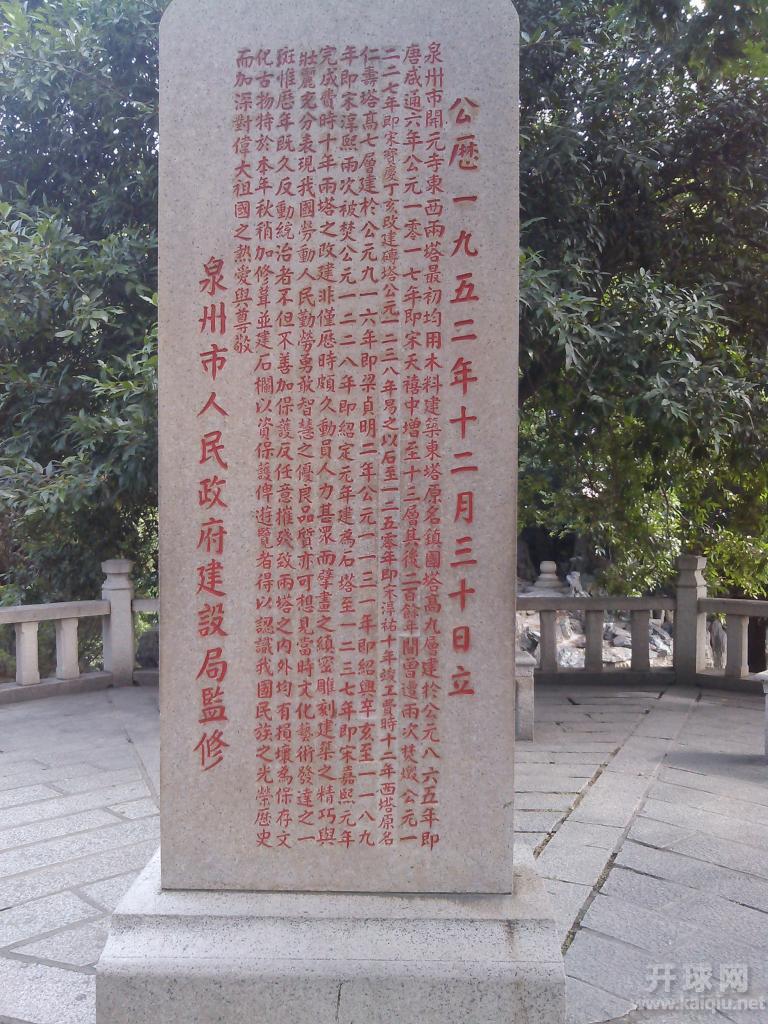 公歷一九五二年十二月三十日立
泉州市開元寺東西兩塔最初均用木料建築東塔原名鎮國塔高九層建於公元八六五年即
唐咸通六年公元一零一七年即宋天禧中增至十三層其後二百餘年間曾遭兩次焚燬公元一
二二七年即宋寶慶丁亥改建磚塔公元一二三八年易之以石至一二五零年即宋淳祐十年竣工費時十二年西塔原名
仁壽塔高七層建於公元九一六年即梁貞明二年公元一一三一年即紹興辛亥至一一八九
年即宋淳熙兩次被焚公元一二二八年即紹定元年建為石塔至一二三七年即宋嘉熙元年
完成費時十年兩塔之改建非僅歷時頗久動員人力甚眾而擘畫之縝密雕刻建築之精巧與
壯麗充分表現我國勞動人民勤勞勇敢智慧之優良品質亦可想見當時文化藝術發達之一
斑惟歷年既久反動統治者不但不善加保護反任意摧殘致兩塔之內外均有損壞為保存文
化古物特於本年秋稍加修葺並建石欄以資保護俾遊覽者得以認識我國民族之光榮歷史
而加深對偉大祖國之熱愛與尊敬
泉州市人民政府建設局監修
开球网
www.kaiqiu.net